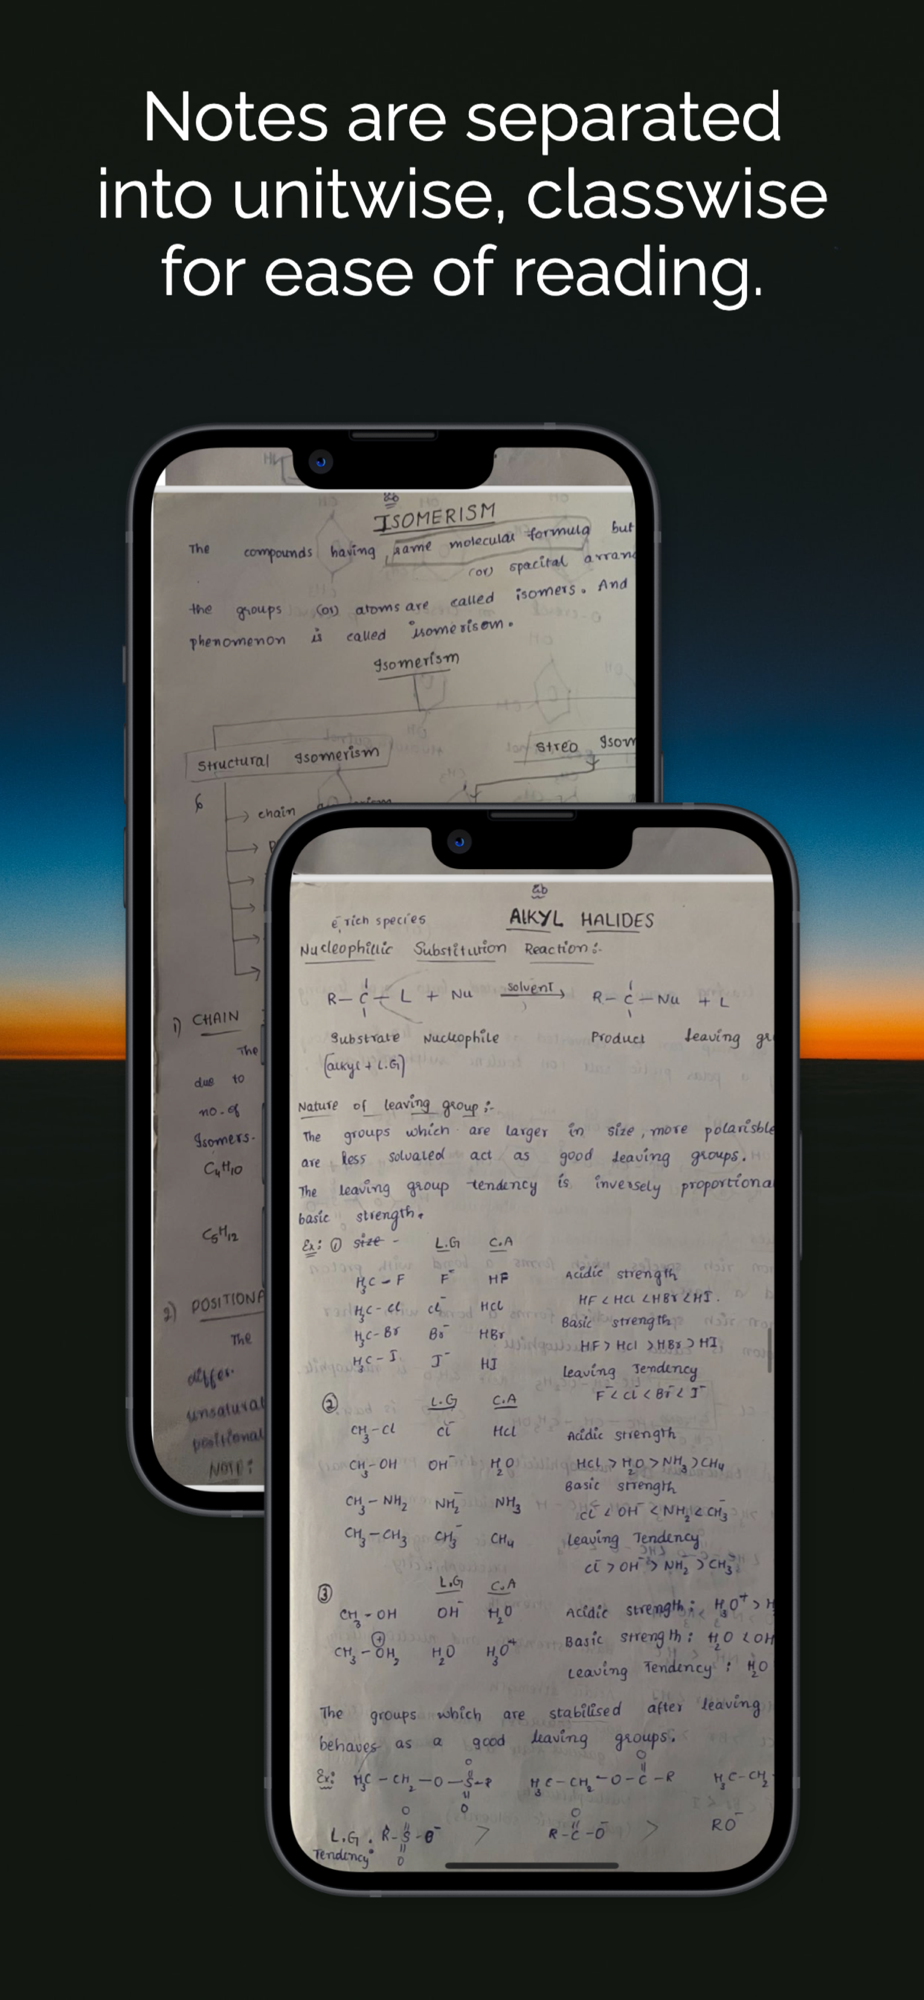 Notes are separated
into unitwise, classwise
for ease of reading.
ISOMERISM
The compounds having same molecular formula but
(or) spacital arran
the groups (or) atoms are called isomers. And
phenomenon is called isomerisom.
Isomerism
Structural Isomerism
Streo Isom
chain
1) CHAIN
The
due to
no-of
Isomers.
C4H10
C5H12
2) POSITIONA
The
differ.
unsatural
positional
NOTE:
ALKYL HALIDES
e⁻ rich species
Nucleophillic Substitution Reaction:-
R-C-L + Nu solvent → R-C-Nu + L
Substrate Nucleophile Product leaving gr
(alkyl + L.G)
Nature of leaving group:-
The groups which are larger in size, more polarisble
are less solvated act as good leaving groups.
The leaving group tendency is inversely proportiona
basic strength.
Ex: ① size - L.G C.A
H3C-F F⁻ HF Acidic strength
HF < HCl < HBr < HI.
H3C-Cl Cl⁻ HCl
Basic strength
H3C-Br Br⁻ HBr
HF > HCl > HBr > HI
H3C-I I⁻ HI
leaving Tendency
F⁻ < Cl⁻ < Br⁻ < I⁻
② L.G C.A
CH3-Cl Cl⁻ HCl Acidic strength
CH3-OH OH⁻ H2O HCl > H2O > NH3 > CH4
Basic strength
CH3-NH2 NH2⁻ NH3 Cl⁻ < OH⁻ < NH2⁻ < CH3⁻
CH3-CH3 CH3⁻ CH4 leaving Tendency
Cl⁻ > OH⁻ > NH2⁻ > CH3⁻
③ L.G C.A
CH3-OH OH⁻ H2O Acidic strength: H3O⁺ > H
Basic strength: H2O < OH
CH3-OH2 H2O H3O⁺
leaving Tendency: H2O
The groups which are stabilised after leaving
behaves as a good leaving groups.
Ex: H3C-CH2-O-S-R H3C-CH2-O-C-R H3C-CH2-
O O O
L.G R-S-O⁻ > R-C-O⁻ > RO⁻
Tendency:
O O O